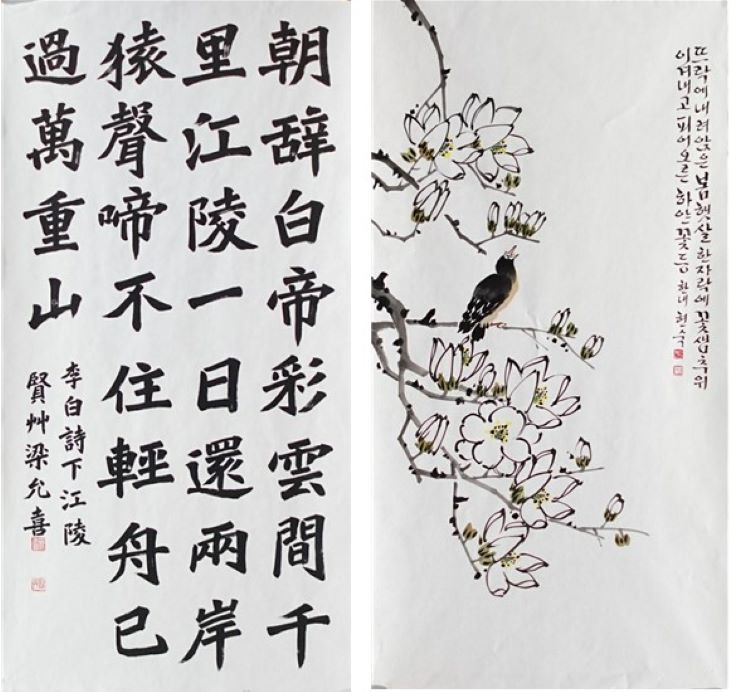 朝辞白帝彩雲間千
里江陵一日還兩岸
猿聲啼不住輕舟已
過萬重山
李白詩下江陵
賢艸梁允喜
뜨락에 내려앉은 봄햇살 한자락에 꽃샘추위
이겨내고 피어오른 하얀꽃등 한내 현숙